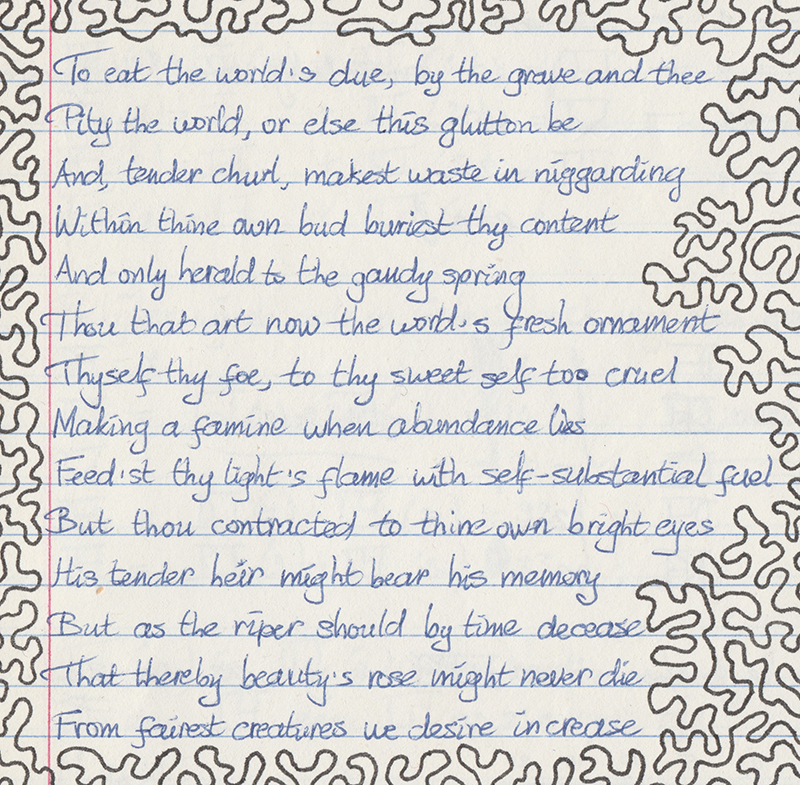 To eat the world's due, by the grave and thee
Pity the world, or else this glutton be
And, tender churl, makest waste in niggarding
Within thine own bud buriest thy content
And only herald to the gaudy spring
Thou that art now the world's fresh ornament
Thyself thy foe, to thy sweet self too cruel
Making a famine when abundance lies
Feed'st thy light's flame with self-substantial fuel
But thou contracted to thine own bright eyes
His tender heir might bear his memory
But as the riper should by time decease
That thereby beauty's rose might never die
From fairest creatures we desire increase